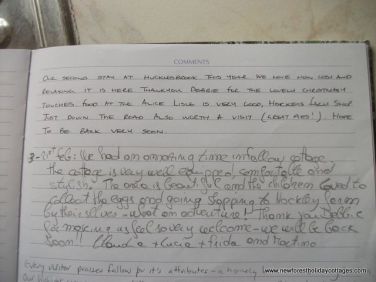 COMMENTS
OUR SECOND STAY AT HUCKLESBROOK THIS YEAR. WE LOVE HOW COSY AND
RELAXING IT IS HERE. THANKYOU DEBBIE FOR THE LOVELY CHRISTMASSY
TOUCHES. FOOD AT THE ALICE LISLE IS VERY GOOD, HOCKEYS FARM SHOP
JUST DOWN THE ROAD ALSO WORTH A VISIT (GREAT PIES!) HOPE
TO BE BACK VERY SOON.
Feb: We had an amazing time in fallow cottage,
the cottage is very well equipped, comfortable and
stylish. The area is beautiful and the children loved to
collect the eggs and going shopping to hockley farm
by themselves - what an adventure!! Thank you Debbie
for making us feel so very welcome - we will be back
soon! Claudia + Lucia + Frida and Martino
Every visitor praises fallow for it's attributes - a homely
www.newforestholidaycottages.com